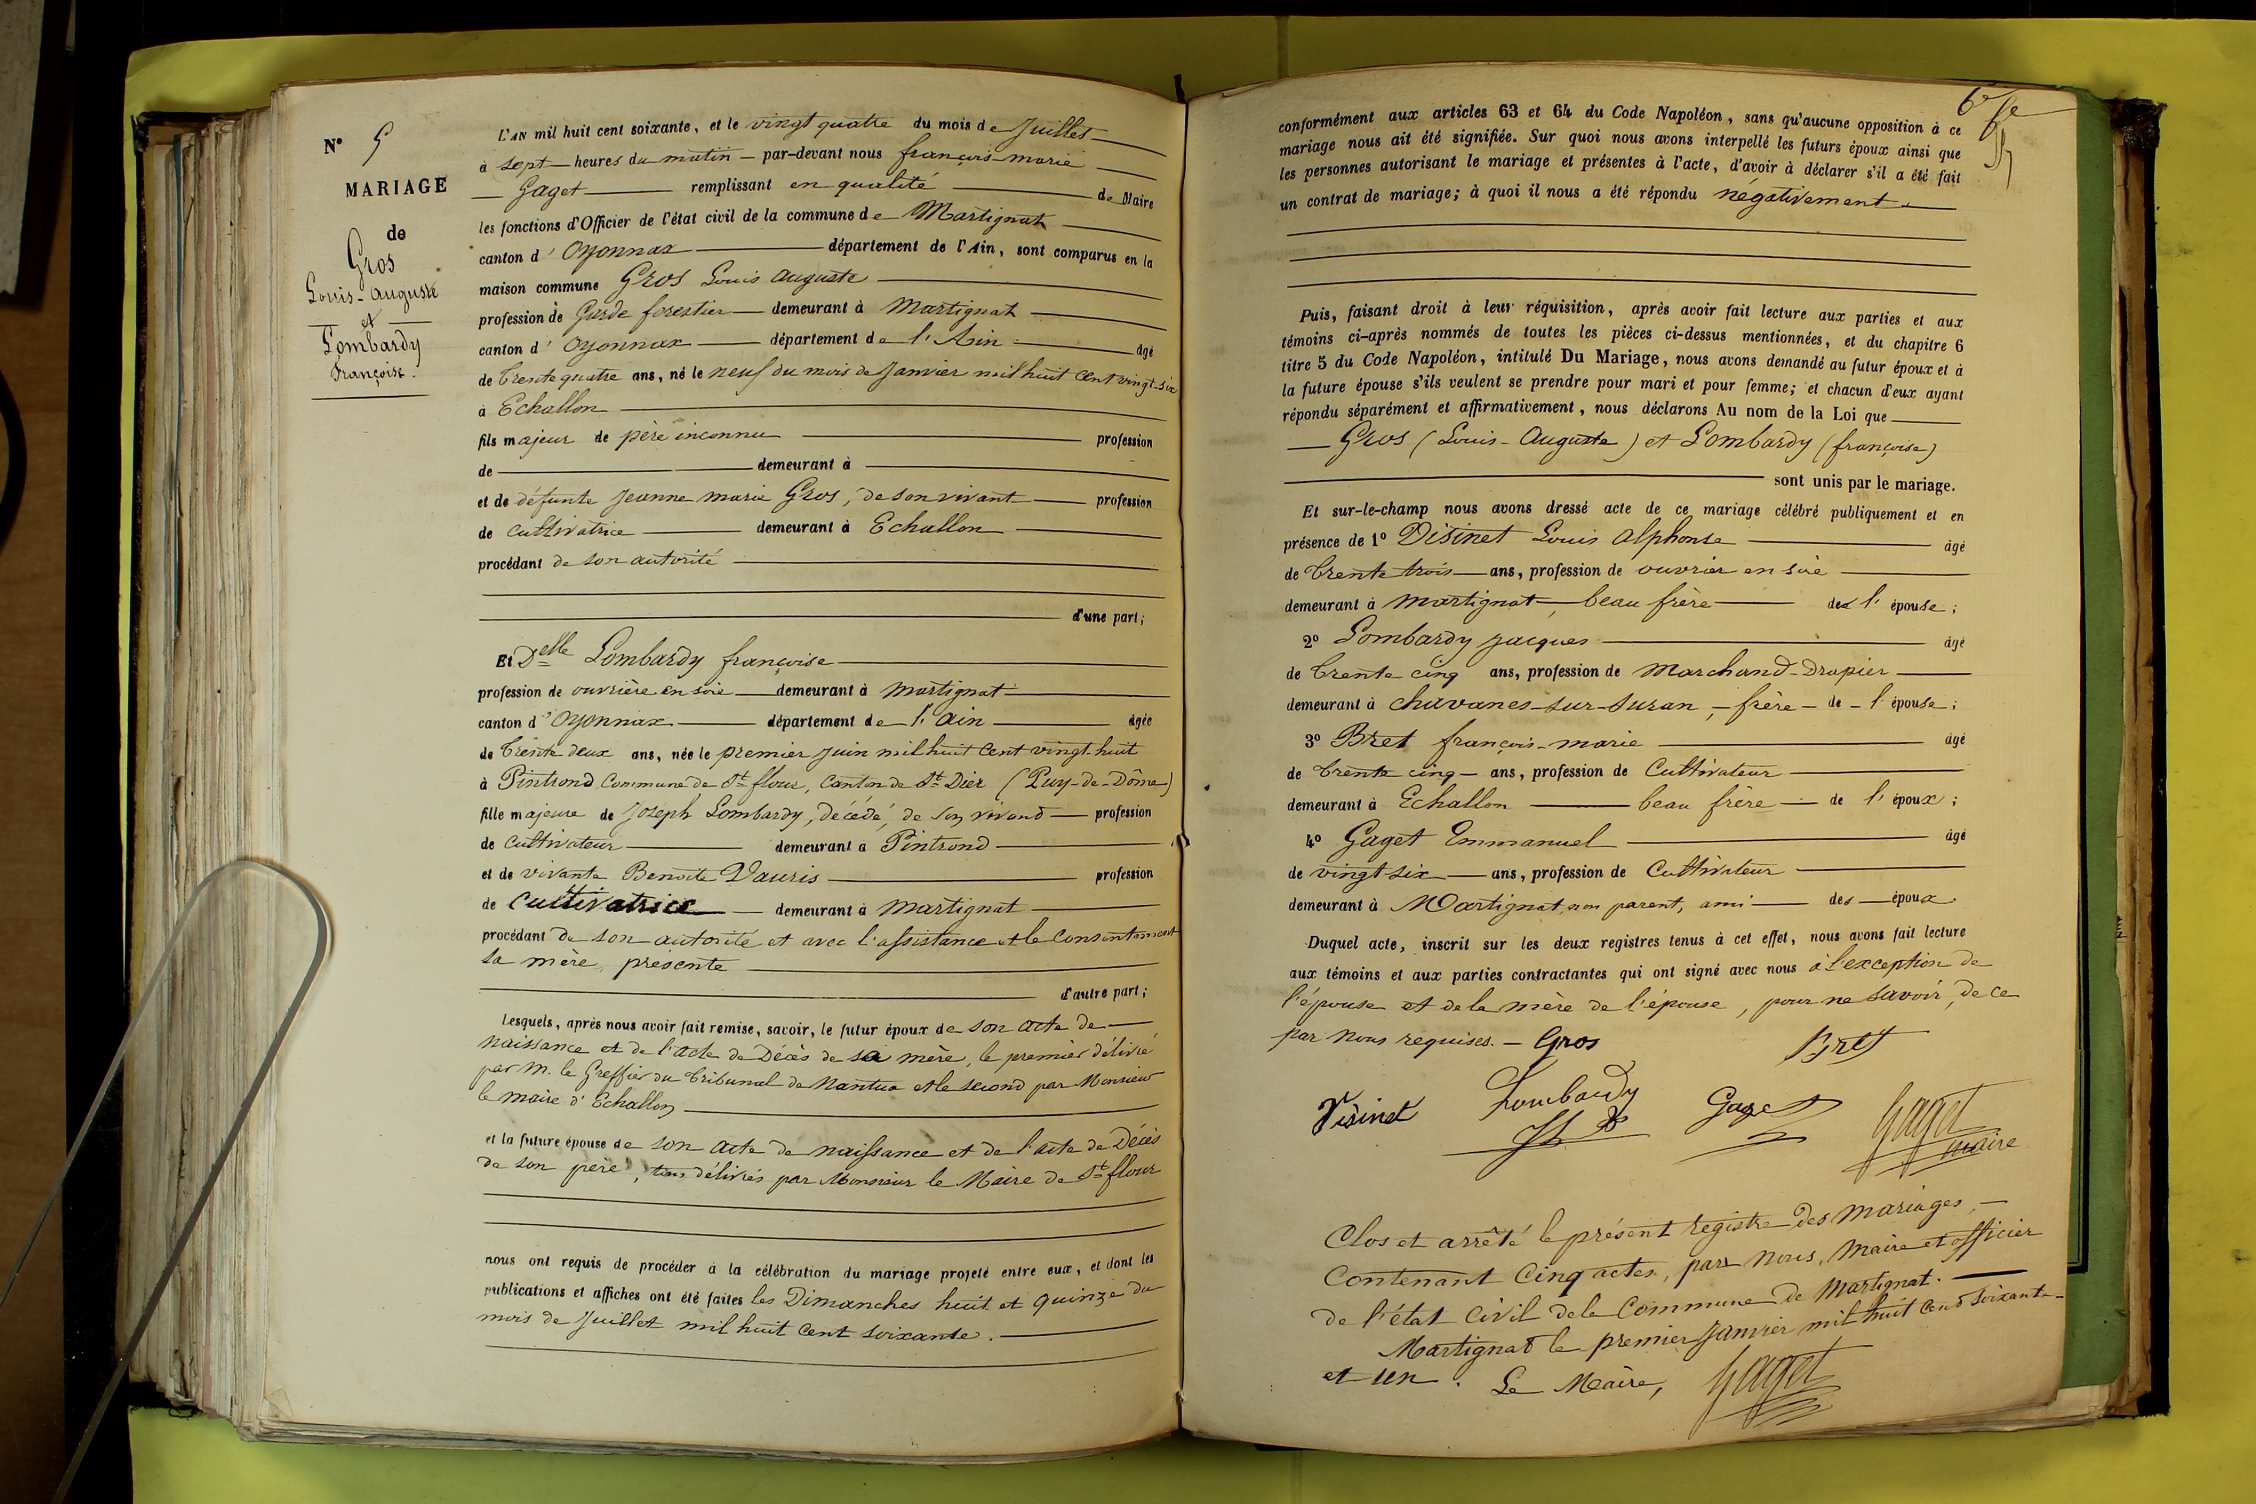 N° 5
MARIAGE
de
Gros
Louis-Auguste
et
Lombardy
Françoise.
L'AN mil huit cent soixante, et le vingt quatre du mois de Juillet
à sept heures du matin par-devant nous françois-marie
Gaget remplissant en qualité de Maire
les fonctions d'Officier de l'état civil de la commune de Martignat
canton d' Oyonnax département de l'Ain, sont comparus en la
maison commune Gros Louis auguste
profession de Garde forestier demeurant à Martignat
canton d' Oyonnax département de l'Ain âgé
de trente quatre ans, né le neuf du mois de Janvier mil huit cent vingt-six
à Echallon
fils majeur de père inconnu profession
de demeurant à
et de défunte Jeanne marie Gros, de son vivant profession
de cultivatrice demeurant à Echallon
procédant de son autorité
d'une part;
Et Delle Lombardy françoise
profession de ouvrière en soie demeurant à Martignat
canton d' Oyonnax département de l'Ain âgée
de trente deux ans, née le premier Juin mil huit cent vingt-huit
à Pintrond Commune de St flour, Canton de St Dier (Puy-de-Dôme)
fille majeure de Joseph Lombardy, décédé, de son vivand profession
de cultivateur demeurant à Pintrond
et de vivante Benoite Vauris profession
de cultivatrice demeurant à Martignat
procédant de son autorité et avec l'assistance et le consentement
sa mère, presente
d'autre part;
Lesquels, après nous avoir fait remise, savoir, le futur époux de son acte de
naissance et de l'acte de Décès de sa mère, le premier délivré
par M. le Greffier du tribunal de Nantua et le second par Monsieur
le maire d'Echallon
et la future épouse de son acte de naissance et de l'acte de Décès
de son père, délivrés par Monsieur le Maire de St flour
nous ont requis de procéder à la célébration du mariage projeté entre eux, et dont les
publications et affiches ont été faites les Dimanches huit et quinze du
mois de Juillet mil huit cent soixante.
6e fe
conformément aux articles 63 et 64 du Code Napoléon, sans qu'aucune opposition à ce
mariage nous ait été signifiée. Sur quoi nous avons interpellé les futurs époux ainsi que
les personnes autorisant le mariage et présentes à l'acte, d'avoir à déclarer s'il a été fait
un contrat de mariage; à quoi il nous a été répondu négativement.
Puis, faisant droit à leur réquisition, après avoir fait lecture aux parties et aux
témoins ci-après nommés de toutes les pièces ci-dessus mentionnées, et du chapitre 6
titre 5 du Code Napoléon, intitulé Du Mariage, nous avons demandé au futur époux et à
la future épouse s'ils veulent se prendre pour mari et pour femme; et chacun d'eux ayant
répondu séparément et affirmativement, nous déclarons Au nom de la Loi que
Gros (Louis-Auguste) et Lombardy (françoise)
sont unis par le mariage.
Et sur-le-champ nous avons dressé acte de ce mariage célébré publiquement et en
présence de 1° Visinet Louis alphonse âgé
de trente trois ans, profession de ouvrier en soie
demeurant à Martignat, beau frère de l'épouse;
2° Lombardy Jacques âgé
de trente cinq ans, profession de Marchand-Drapier
demeurant à Chavanes-sur-Suran, frère de l'épouse;
3° Bret françois-marie âgé
de trente cinq ans, profession de Cultivateur
demeurant à Echallon beau frère de l'époux;
4° Gaget Emmanuel âgé
de vingt six ans, profession de Cultivateur
demeurant à Martignat, non parent, ami des époux.
Duquel acte, inscrit sur les deux registres tenus à cet effet, nous avons fait lecture
aux témoins et aux parties contractantes qui ont signé avec nous à l'exception de
l'épouse et de la mère de l'épouse, pour ne savoir, de ce
par nous requises. - Gros Bret
Visinet Lombardy Gaget Gaget
maire
Clos et arrêté le présent registre des Mariages,
Contenant Cinq actes, par nous, Maire et officier
de l'état civil de la Commune de Martignat.
Martignat le premier Janvier mil huit cent soixante-
et un. Le Maire, Gaget